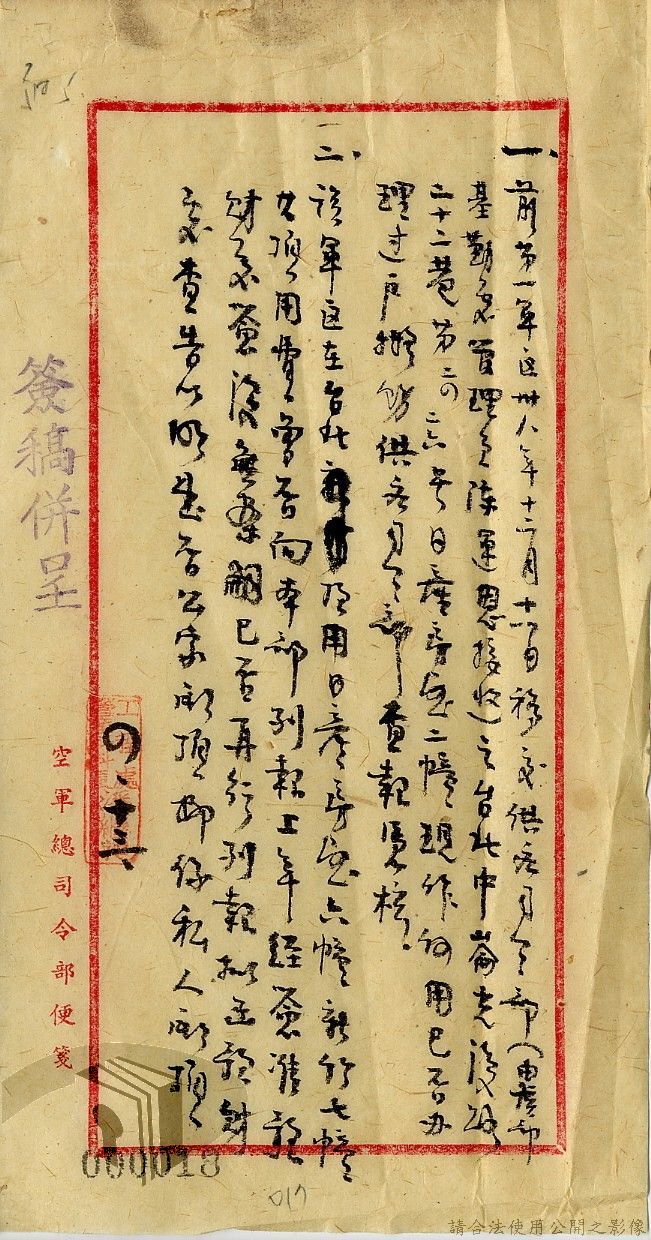 一、前第一軍區卅八年十二月十六日移交供應司令部(由該部
基勤處管理員陳運恩接收)之台北中崙光復路
二十二巷第二の二六号日產房屋二幢現作何用已否办
理過戶擬飭供應司令部查報憑核。
二、該軍區在台北市 用日產房屋六幢新竹七幢
其頂用費曾否向本部列報上年經簽准
財務簽復無案嗣已否再行列報拟函該財
處查告以明是否公家承頂抑係私人承頂
の、十三
簽稿併呈
空軍總司令部便箋
000018
017
請合法使用公開之影像